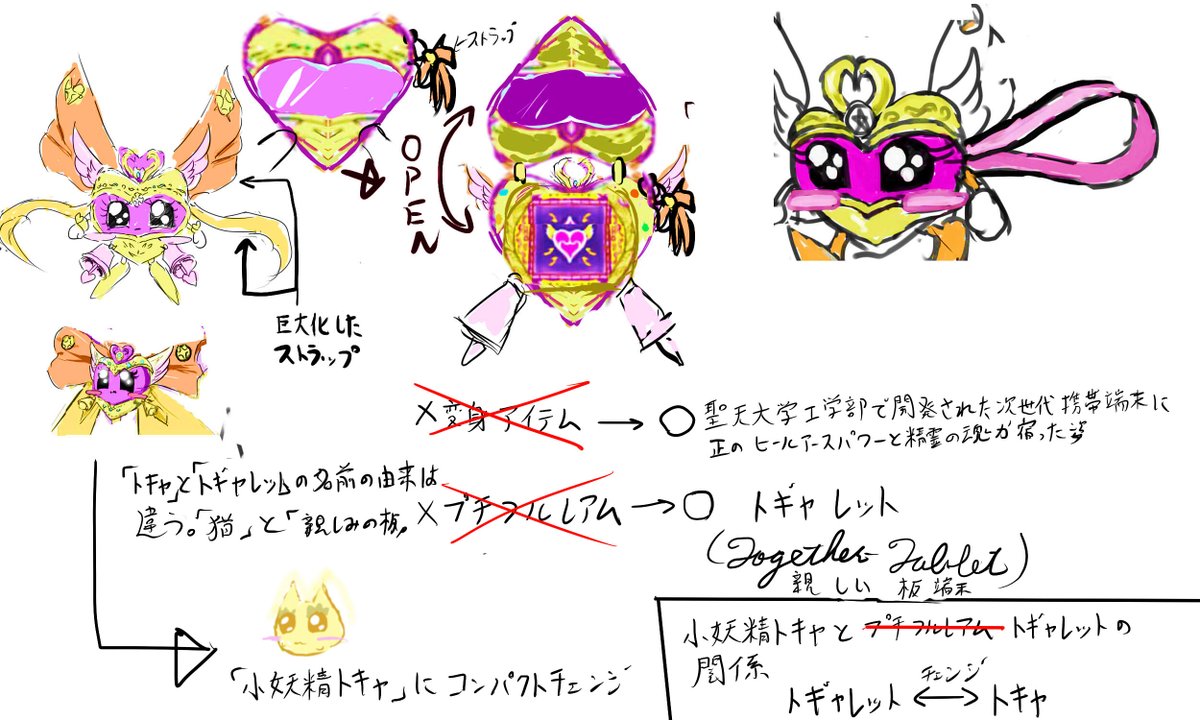 ストラップ
OPEN
巨大化した
ストラップ
×変身アイテム → ○ 聖天大学工学部で開発された次世代携帯端末に
正のヒールアースパワーと精霊の魂が宿った姿
「トキャ」と「トギャレット」の名前の由来は
違う。「猫」と「親しみの板」
×プチフルレアム → ○ トギャレット
(Together Tablet)
親しい 板端末
「小妖精トキャ」にコンパクトチェンジ
小妖精トキャとプチフルレアムトギャレットの
関係
チェンジ
トギャレット ⟷ トキャ